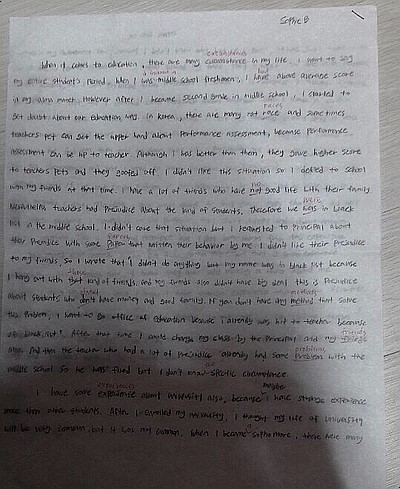 Sophie B
experiences
When it comes to education, there are many circumstance in my life. I want to say
my entire student's period. When I was middle school freshmen, I have about average score
in my alma mater. However after I became second grade in middle school, I started to
get doubt about our education way. In Korea, there are many rat race and sometimes
teachers pet can get the upper hand about performance assessment, because performance
assessment can be up to teacher. Although I was better than them, they gave higher score
to teachers pets and they goofed off. I didn't like this situation so I defied to school
with my friends at that time. I have a lot of friends who have not good life with their family
teachers had prejudice about the kind of students, therefore we was in black
list in the middle school. I didn't care that situation but I requested to Principal about
their Prejudice with some Paper that written their behavior by me. I didn't like their Prejudice
to my friends. So I wrote that I didn't do anything but my name was in black list because
I hang out with that kind of friends, and my friends also didn't have big deal. this is Prejudice
about students who don't have money and good family. If you don't have any method that some
this Problem, I want to go office of education because I already was hit to teacher because
of black list". After that time I could change my class by the Principal and my
also. And then the teacher who had a lot of Prejudice already had some Problem with the
middle school so he was fired but I don't know specific circumstance.
experiences maybe
I have some experience about university also, because I have strange experience
more than other students. After I enrolled my university, I thought my life of university
will be very common, but it was not common. When I became sophomore, there were many